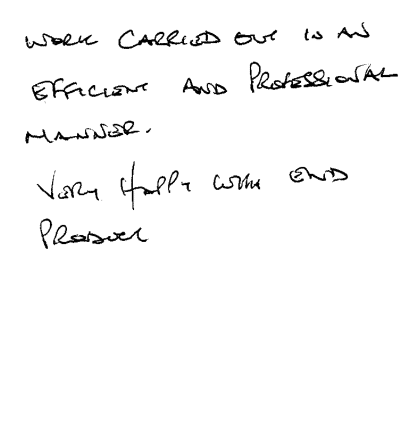 WORK CARRIED OUT IN AN
EFFICIENT AND PROFESSIONAL
MANNER.
VERY HAPPY WITH END
PRODUCT